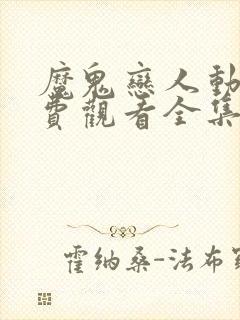 魔鬼戀人動
費觀看全集
霍纳桑-法布